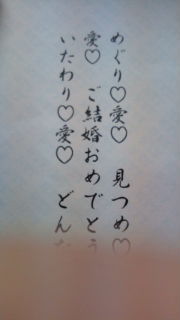 めぐり♡愛♡　見つめ♡
愛♡　ご結婚おめでとう
いたわり♡愛♡　どんな